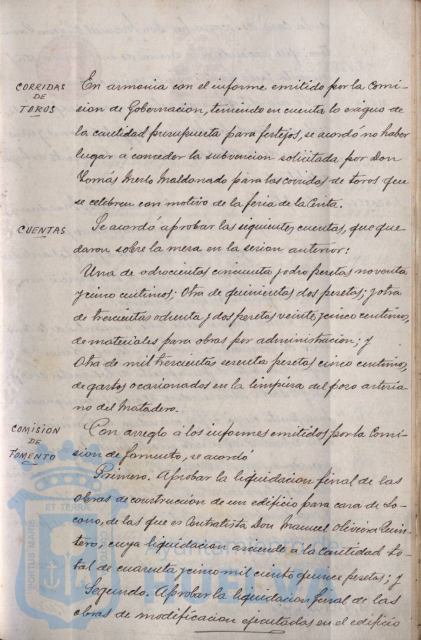 CORRIDAS
DE
TOROS
En armonia con el informe emitido por la Comi-
sion de Gobernacion, teniendo en cuenta lo exiguo de
la cantidad presupuesta para festejos, se acordó no haber
lugar á conceder la subvencion solicitada por Don
Tomás Merlo Maldonado para las corridas de toros que
se celebren con motivo de la feria de la Cinta.
CUENTAS
Se acordó aprobar las siguientes cuentas, que que-
daron sobre la mesa en la sesion anterior:
Una de ochocientas cincuenta y ocho pesetas noventa
y cinco centimos; Otra de quinientas dos pesetas; y otra
de trescientas ochenta y dos pesetas veinte y cinco centimos,
de materiales para obras por administracion; y
Otra de mil trescientas sesenta pesetas cinco centimos,
de gastos ocasionados en la limpieza del pozo artesia-
no del Matadero.
COMISION
DE
FOMENTO
Con arreglo á los informes emitidos por la Comi-
sion de fomento, se acordó
Primero. Aprobar la liquidacion final de las
obras de construccion de un edificio para casa de So-
corro, de las que es Contratista Don Manuel Oliveira Quin-
tero, cuya liquidacion asciende á la cantidad to-
tal de cuarenta y cinco mil ciento quince pesetas; y
Segundo. Aprobar la liquidacion final de las
obras de modificacion ejecutadas en el edificio
ET TERRÆ
PORTUS MARIS
Ayuntamiento de
HUELVA